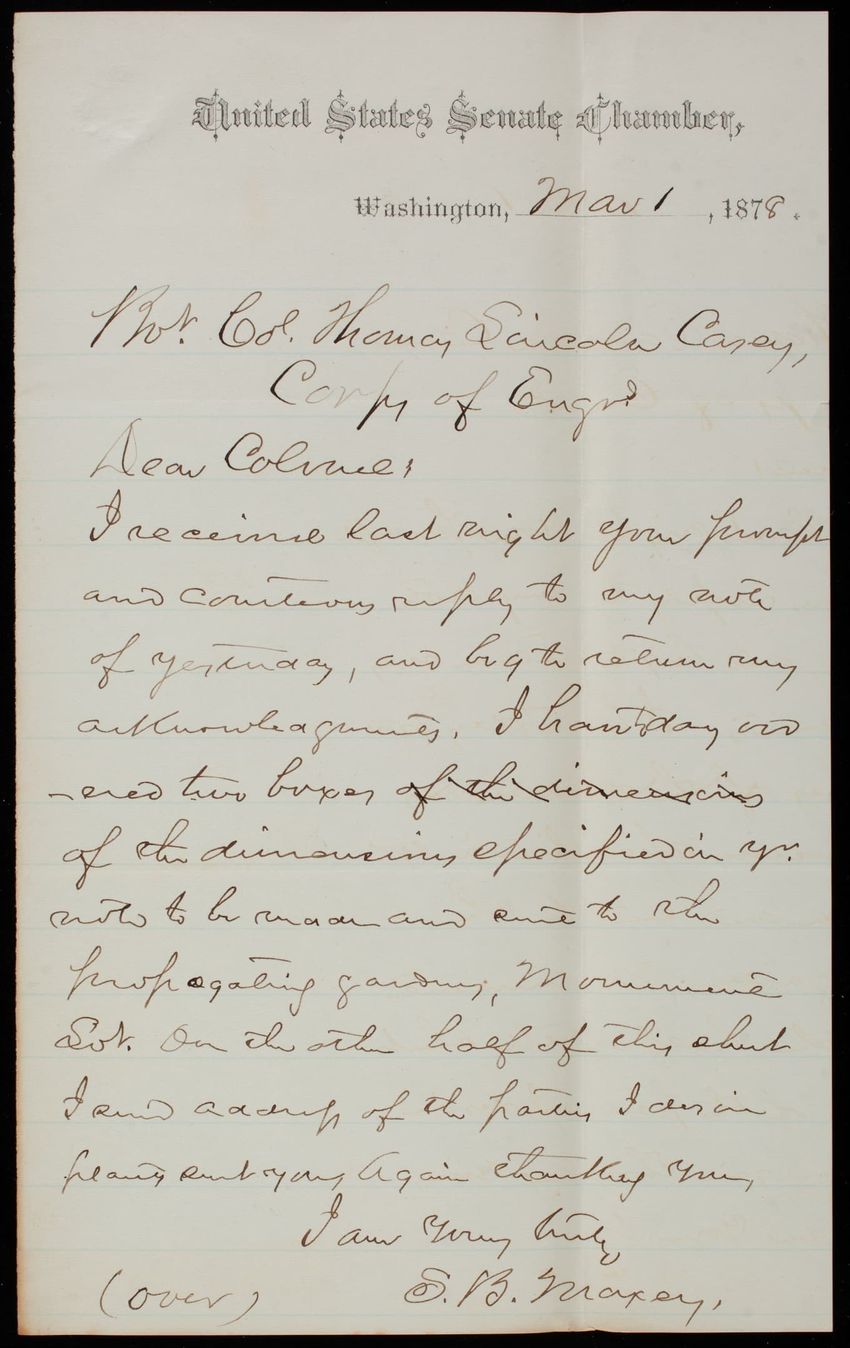 United States Senate Chamber,
Washington, Mar 1, 1878.
Bvt. Col. Thomas Lincoln Casey,
Corps of Engrs
Dear Colonel;
I received last night your prompt
and courteous reply to my note
of yesterday, and beg to return my
acknowledgments. I have to day ord
-ered two boxes of the dimensions
of the dimensions specified in yr.
note to be made and sent to the
propagating gardens, Monument
Lot. On the other half of this sheet
I send address of the parties I desire
plants sent Again thanking you,
I am Yours truly
S. B. Maxey.
(over)